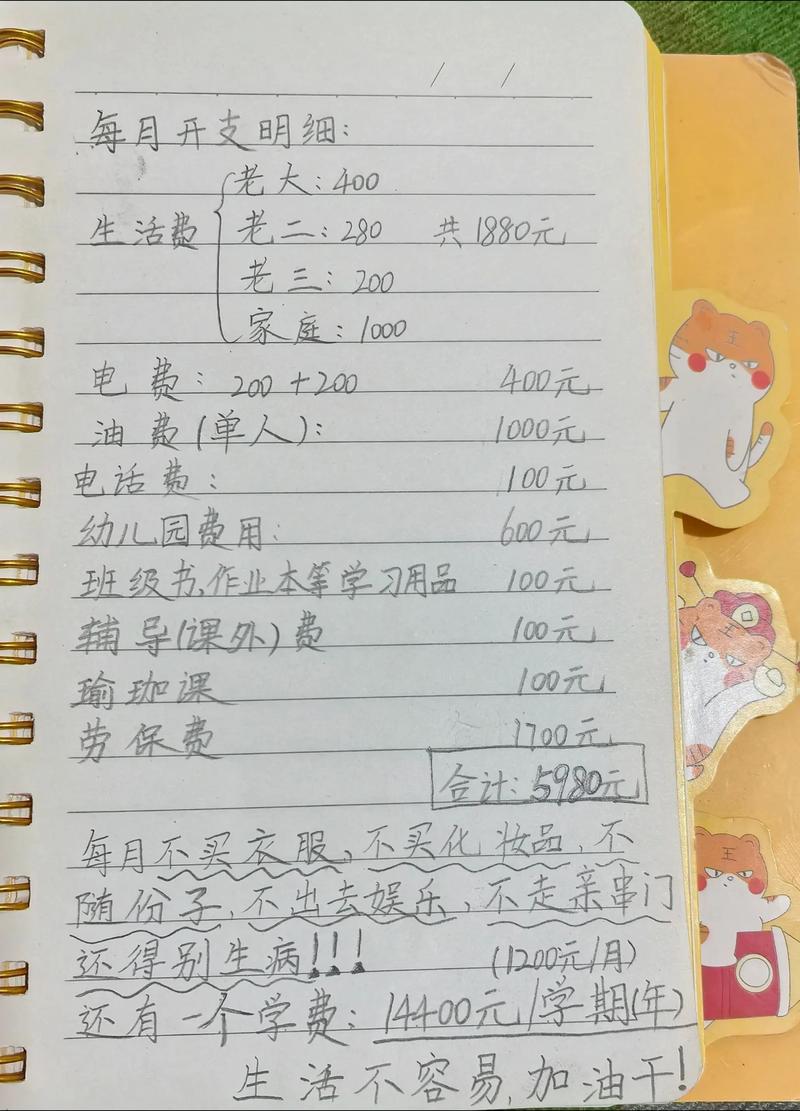 / /
每月开支明细:
老大:400
生活费 老二:280 共1880元
老三:200
家庭:1000
电费:200+200 400元
油费(单人): 1000元
电话费: 100元
幼儿园费用: 600元
班级书、作业本等学习用品 100元
辅导(课外)费 100元
瑜珈课 100元
劳保费 1700元
合计:5980元
每月不买衣服、不买化妆品,不
随份子,不出去娱乐,不走亲串门
还得别生病!!! (1200元/月)
还有一个学费:14400元/学期(年)
生活不容易,加油干!
王
王
王